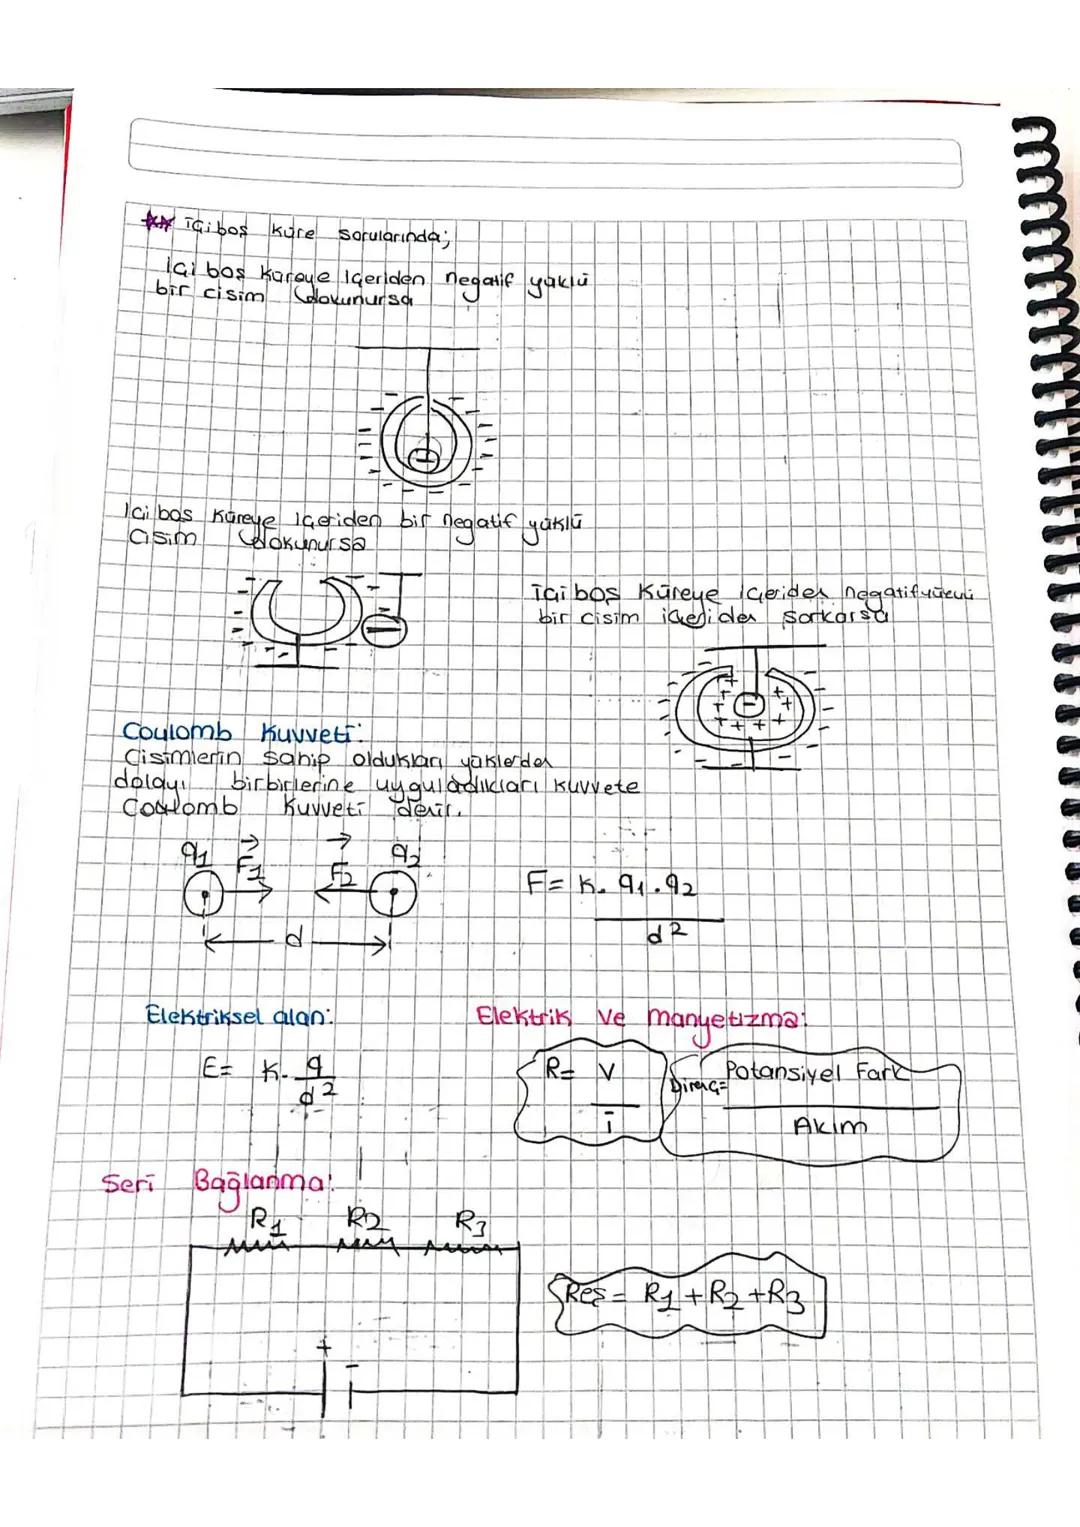 ** İçi boş küre sorularında;
İçi boş küreye içeriden negatif yüklü
bir cisim dokunursa
İçi boş küreye içeriden bir negatif yüklü
cisim dokunursa
İçi boş küreye içeriden negatif yüklü
bir cisim içeriden sarkarsa
Coulomb Kuvveti:
Cisimlerin sahip oldukları yüklerden
dolayı birbirlerine uyguladıkları kuvvete
Coulomb kuvveti denir.
q1 F1 F2 q2
d
F= k. q1.q2
d2
Elektriksel alan:
E= k. q
d2
Elektrik ve manyetizma:
R= V
i
Direnç= Potansiyel Fark
Akım
Seri Bağlanma:
R1 R2 R3
+ -
Reş= R1+R2+R3